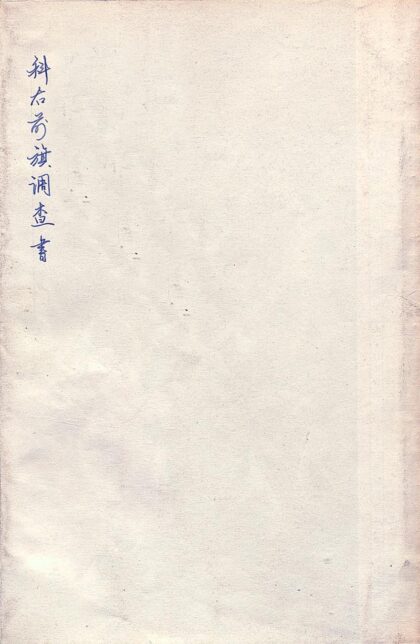 科右前旗调查书